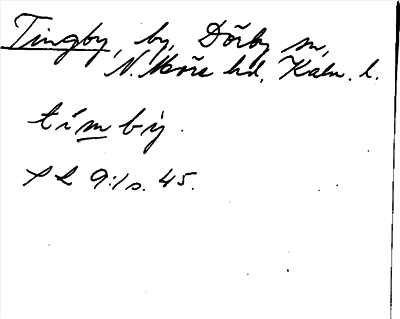 Tingby, by, Dörby sn,
N. Möre hd, Kalm. l.
tímbý.
Sk 9:1 s. 45.